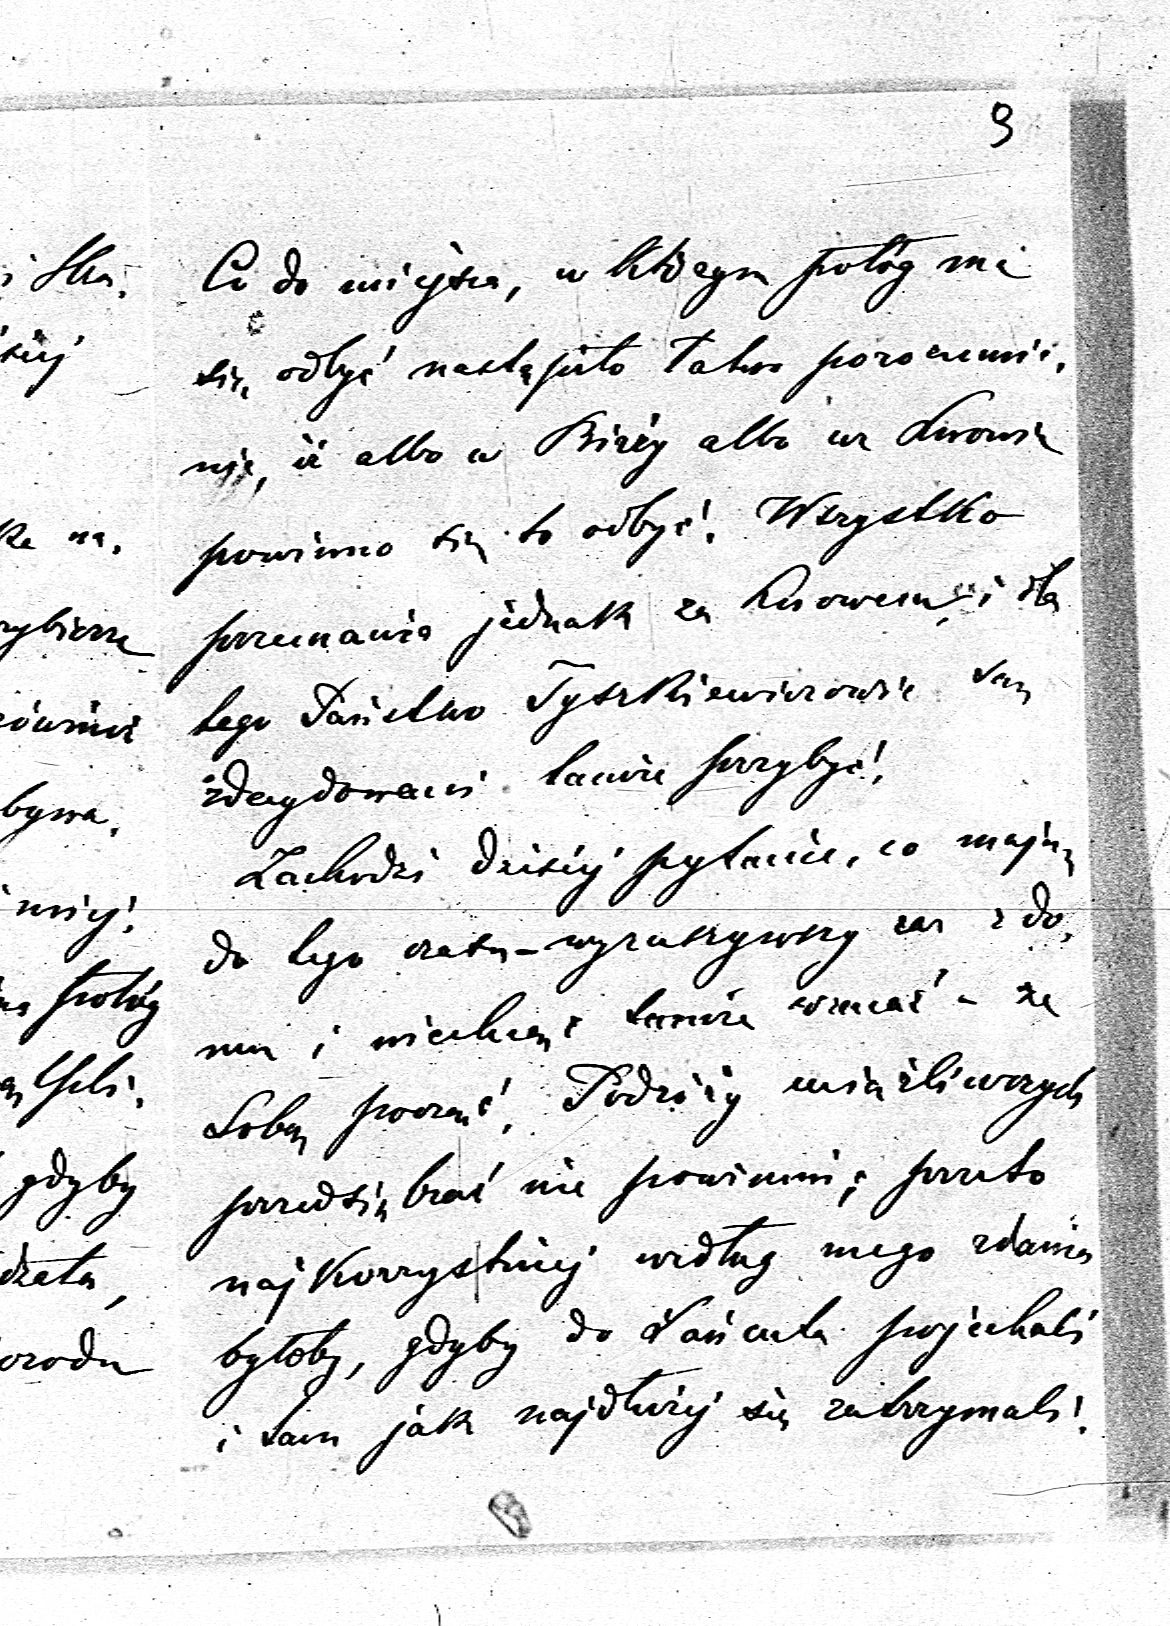 9
Co do miejsca, w którym połóg ma
się odbyć nastąpiło łatwo porozumie,
nie, iż albo w Birży albo we Lwowie
powinno się to odbyć. Wszystko
przemawia jednak za Lwowem, i dla
tego Państwo Tyszkiewiczowie są
zdecydowani tamże przybyć.
Zachodzi dzisiej pytanie, co mają
do tego czasu – wyruszywszy raz z do,
mu i niechcąc tamże wracać – ze
sobą począć. Podróży uciążliwszych
przedsiębrać nie powinni; przeto
najkorzystniej według mego zdania
byłoby, gdyby do Łańcuta pojechali
i tam jak najdłużej się zatrzymali.
rzybierze
również
bywa.
połóg
gdyby